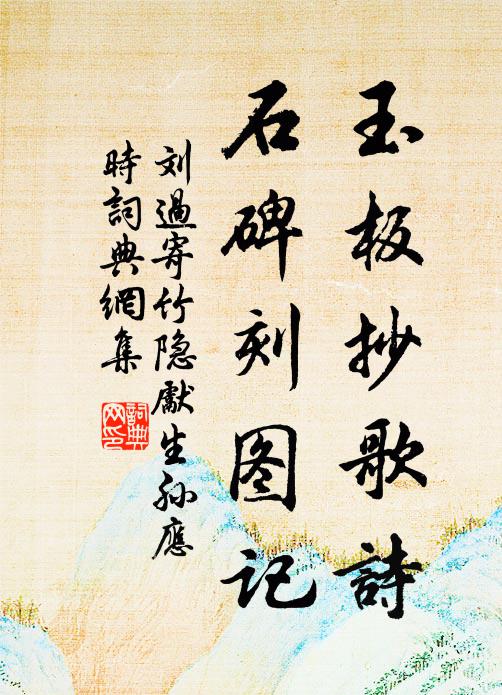 玉板抄歌詩
石碑刻图记
刘過寄竹隐獻生孙應
時詞典網集
詞典
网印